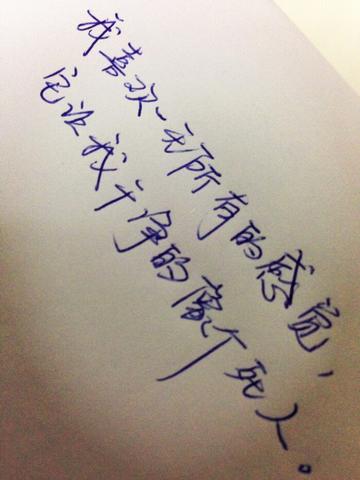 我喜欢一无所有的感觉，
它让我干净的像个死人。